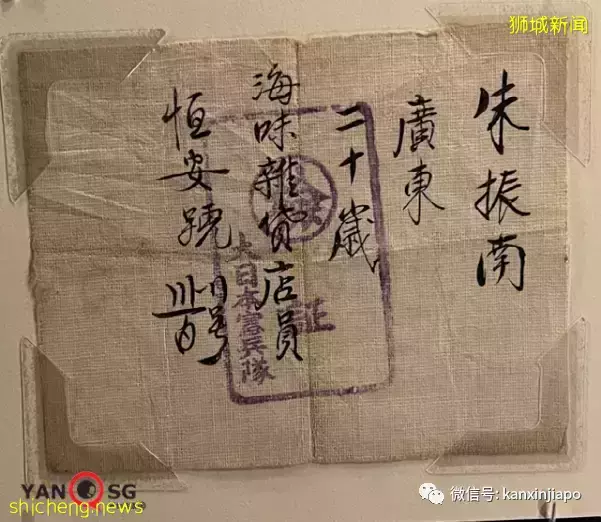 狮城新闻
朱振南
廣東
二十歲
海味雜貨店員
恒安
号
檢
証
大日本憲兵隊
YAN SG
shicheng.news
微信号: kanxinjiapo